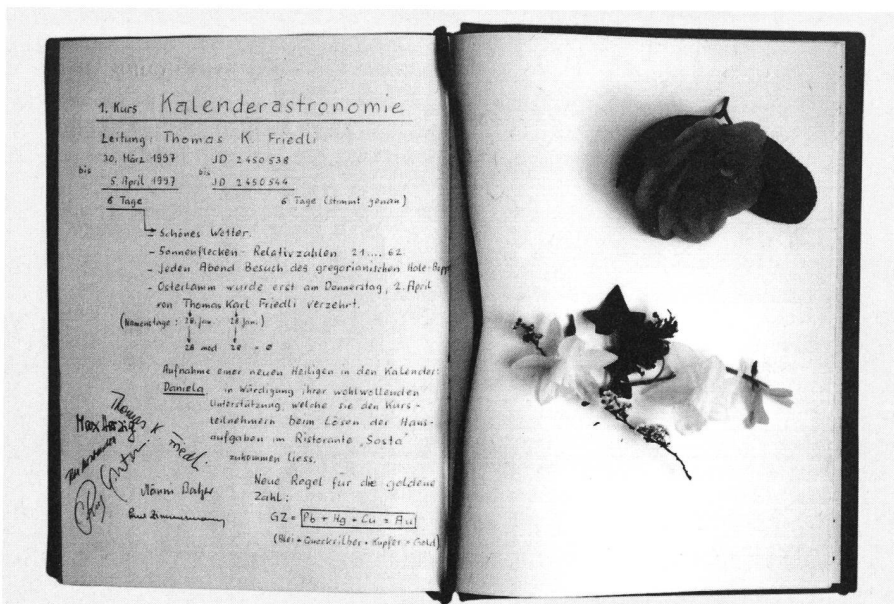 1. Kurs Kalenderastronomie
Leitung: Thomas K. Friedli
30. März 1997 JD 2450538
bis bis
5. April 1997 JD 2450544
6 Tage 6 Tage (stimmt genau)
- Schönes Wetter.
- Sonnenflecken-Relativzahlen 21.... 62
- jeden Abend Besuch des gregorianischen Hale-Bopp
- Osterlamm wurde erst am Donnerstag, 2. April
von Thomas Karl Friedli verzehrt.
(Namenstage: 28. jan. 28. jan.)
28 mod 28 = 0
Aufnahme einer neuen Heiligen in den Kalender:
Daniela in Würdigung ihrer wohlwollenden
Unterstützung, welche sie den Kurs-
teilnehmern beim Lösen der Haus-
aufgaben im Ristorante "Sosta"
zukommen liess.
Thomas K. Friedli.
Neue Regel für die goldene
Zahl:
GZ = Pb + Hg + Cu = Au
(Blei + Quecksilber + Kupfer = Gold)